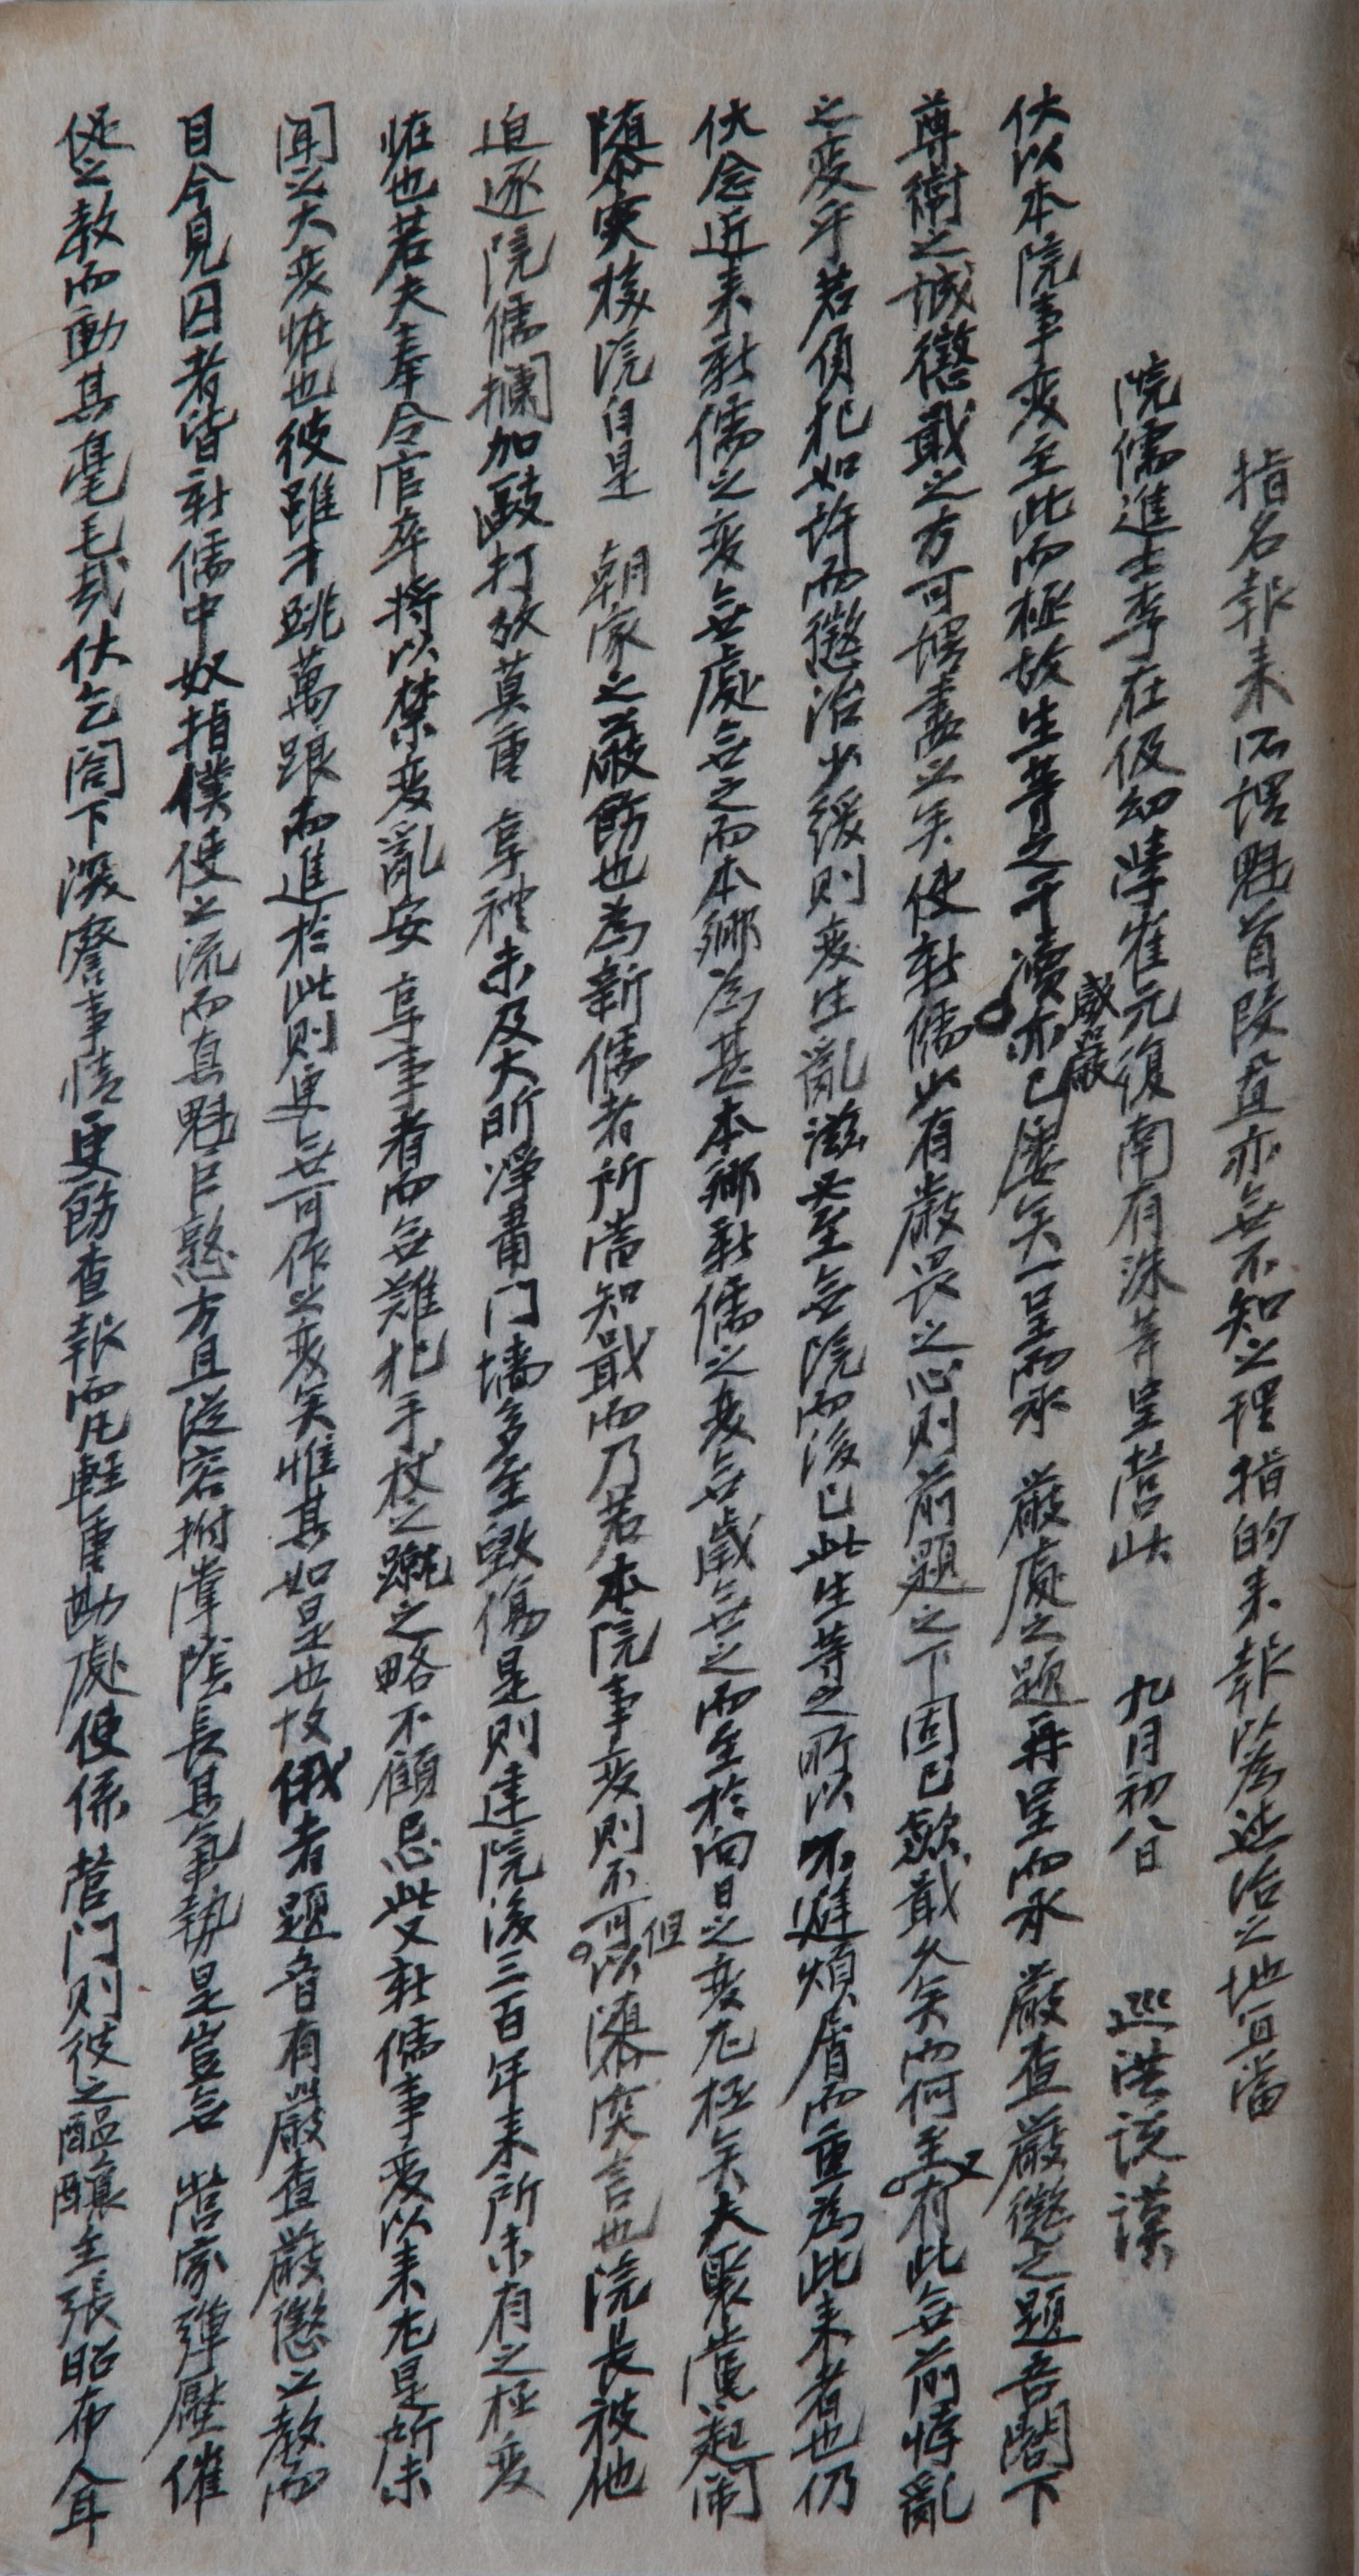 指名報来所謂魁首段置亦無不知之理指的来報以為逑治之地宜當
院儒進士李在伋幼學崔元復南有洙等呈營此 九月初八日 巡洪説謨
伏以本院事変至此而極故生等之干瀆威嚴亦已屢矣一呈而承 嚴處之題再呈而承 嚴查嚴懲之題吾閤下
尊衛之誠懲戢之方可謂盡之矣使新儒少有嚴畏之心則前題之下固已歛戢久矣而何至又有此無前悖亂
之変乎若負犯如許而懲治少緩則変生亂滋必至無院而後已此生等之所以不避煩屑而重為此来者也仍
伏念近来新儒之変無處無之而本鄉為甚本鄉新儒之変無歲無之而至於向日之変尤極矣夫聚黨起閙
隳突校院自是 朝家之嚴飭也為新儒者所當知戢而乃若本院事変則不可但以隳突言也院長被他
迫逐院儒攔加敺打致莫重 享禮未及大昕淨肅門墻多至毀傷是則建院後三百年来所未有之極変
恠也若夫奉令官卒將以禁変亂安 享事者而無難犯手杖之蹴之略不顧忌此又新儒事変以来尤是所未
聞之大変恠也彼雖千跳萬踉而進於此則更無可作之変矣惟其如是也故俄者題音有嚴查嚴懲之教而
目今見囚者皆新儒中奴指僕使之流而真魁巨慝方且從容拊掌陰長其氣勢是豈無 營家彈壓催
促之教而動其毫毛哉伏乞閤下深詧事情更飭查報而凡輕重勘處使係 營門則彼之醞釀主張昭布人耳